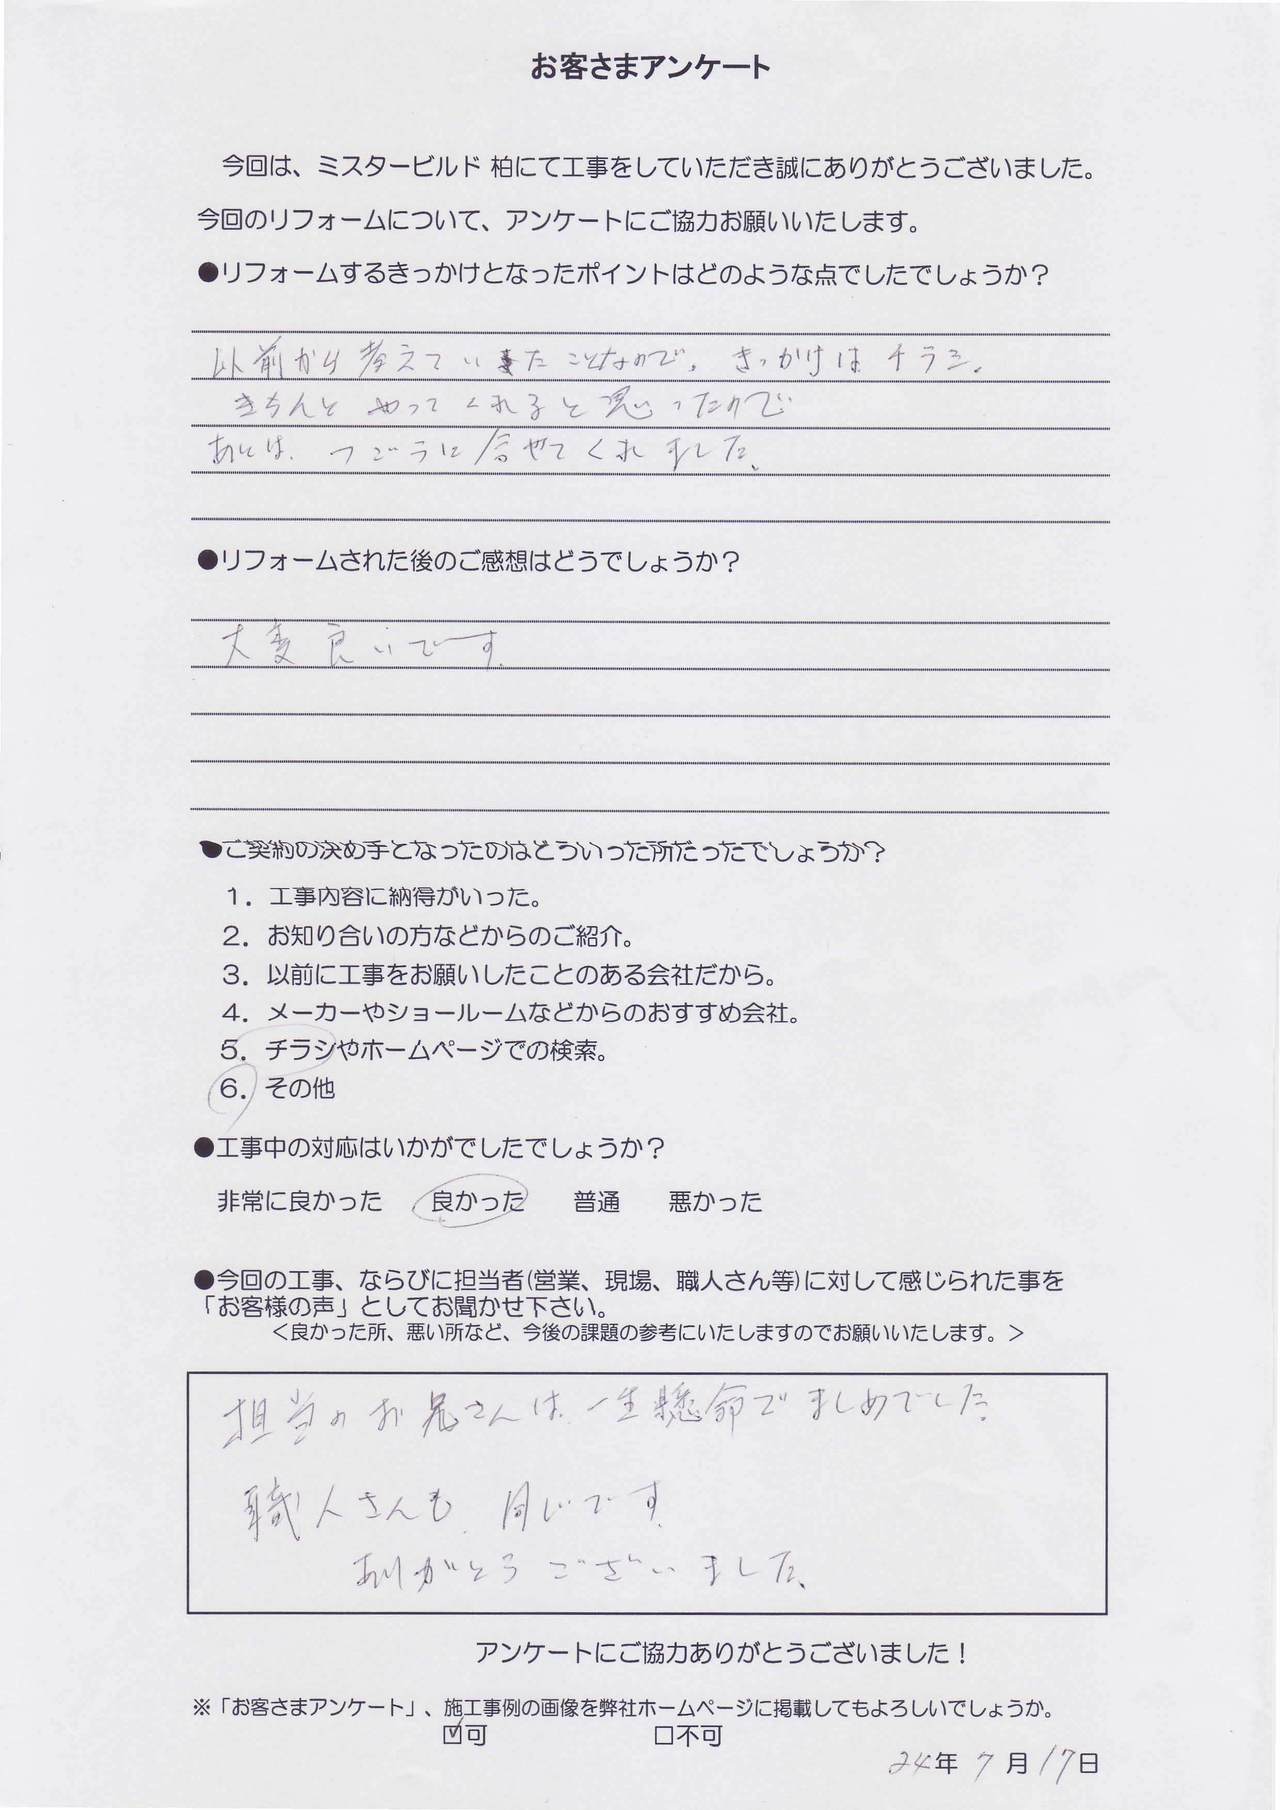 お客さまアンケート
今回は、ミスタービルド 柏にて工事をしていただき誠にありがとうございました。
今回のリフォームについて、アンケートにご協力お願いいたします。
●リフォームするきっかけとなったポイントはどのような点でしたでしょうか？
以前から考えていた ことなので。きっかけは チラシ.
きちんと やってくれると思ったので
あとは、つごうに合せてくれました。
●リフォームされた後のご感想はどうでしょうか？
大変良いです。
●ご契約の決め手となったのはどういった所だったでしょうか？
1．工事内容に納得がいった。
2．お知り合いの方などからのご紹介。
3．以前に工事をお願いしたことのある会社だから。
4．メーカーやショールームなどからのおすすめ会社。
5．チラシやホームページでの検索。
6．その他
●工事中の対応はいかがでしたでしょうか？
非常に良かった　良かった　普通　悪かった
●今回の工事、ならびに担当者(営業、現場、職人さん等)に対して感じられた事を
「お客様の声」としてお聞かせ下さい。
＜良かった所、悪い所など、今後の課題の参考にいたしますのでお願いいたします。＞
担当のお兄さんは、一生懸命でまじめでした
職人さんも、同じです。
ありがとうございました。
アンケートにご協力ありがとうございました！
※「お客さまアンケート」、施工事例の画像を弊社ホームページに掲載してもよろしいでしょうか。
☑可　□不可
24年 7月17日